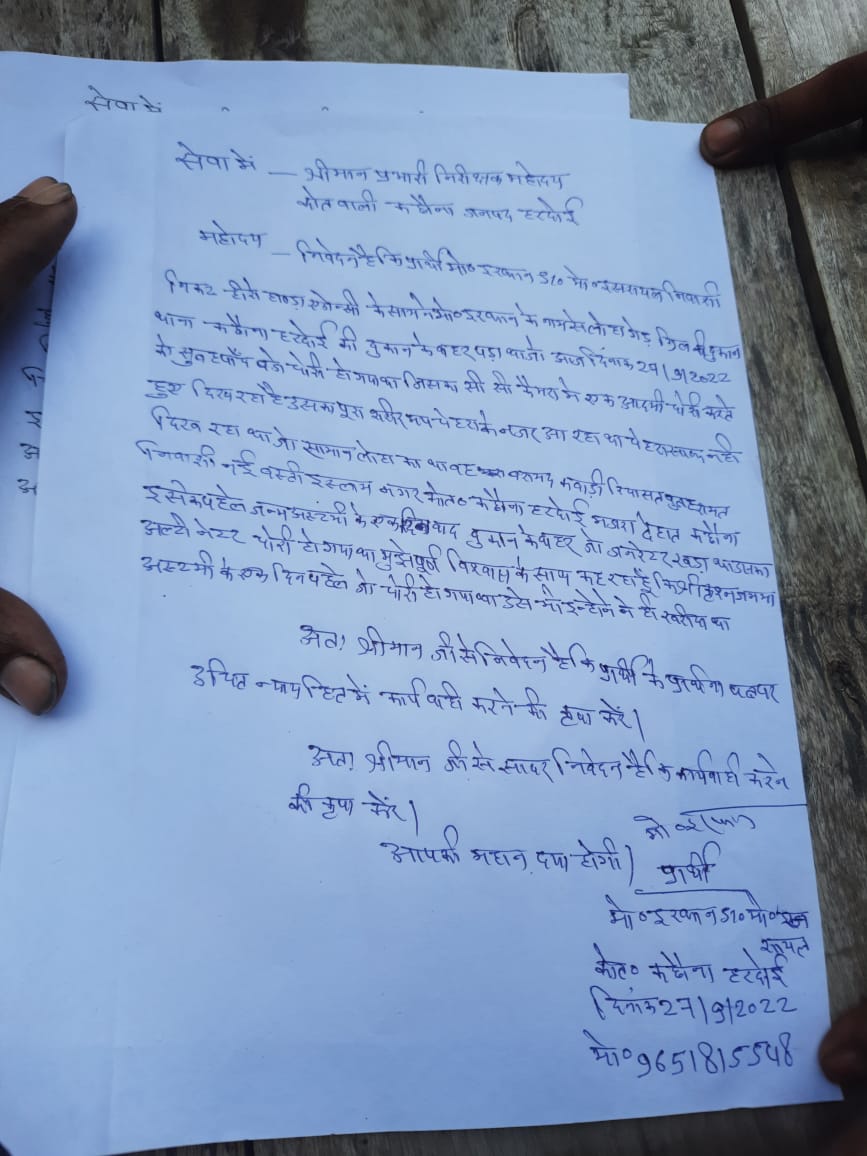 सेवा में
सेवा में — श्रीमान प्रभारी निरीक्षक महोदय
कोतवाली कछौना जनपद हरदोई
महोदय — निवेदन है कि प्रार्थी मो० इरफान S/o मो० इसरायल निवासी
निकट हीरो हाण्डा एजेन्सी के सामने मो० इरफान के नाम से लोहा गेट ग्रिल की दुकान
थाना कछौना हरदोई की दुकान के बहर पड़ा था जो आज दिनांक 27/9/2022
को सुबह पाँच बजे चोरी हो गया जिसका सी सी कैमरा मे एक आदमी चोरी करते
हुए दिख रहा है उसका पूरा शरीर मय चेहरा के नजर आ रहा था चेहरा साफ नही
दिख रहा था जो सामान लोहा का था वह बरामद कबाड़ी रियासत पुत्र
निवासी नई बस्ती इस्लाम नगर कोत० कछौना हरदोई मजरा देहात कछौना
इसके पहेले जन्म अस्टमी के एक दिन बाद दुकान के बाहर जो जनरेटर खड़ा था उसका
अल्टीनेटर चोरी हो गया था मुझे पूर्ण विश्वास के साथ कह रहा हूँ कि श्री कृश्न जनमा
अस्टमी के एक दिन पहेले जो चोरी हो गया था उसे भी इन्होने ने ही खरीदा था
अतः श्रीमान जी से निवेदन है कि प्रार्थी के प्रार्थना पत्र पर
उचित न्याय हित में कार्यवाही करने की कृपा करें।
अतः श्रीमान जी से सादर निवेदन है कि कार्यवाही करने
की कृपा करें।
मो० इरफान
आपकी महान दया होगी।
प्रार्थी
मो० इरफान S/o मो० इस
रायल
कोत० कछौना हरदोई
दिनांक 27/9/2022
मो० 9651815548